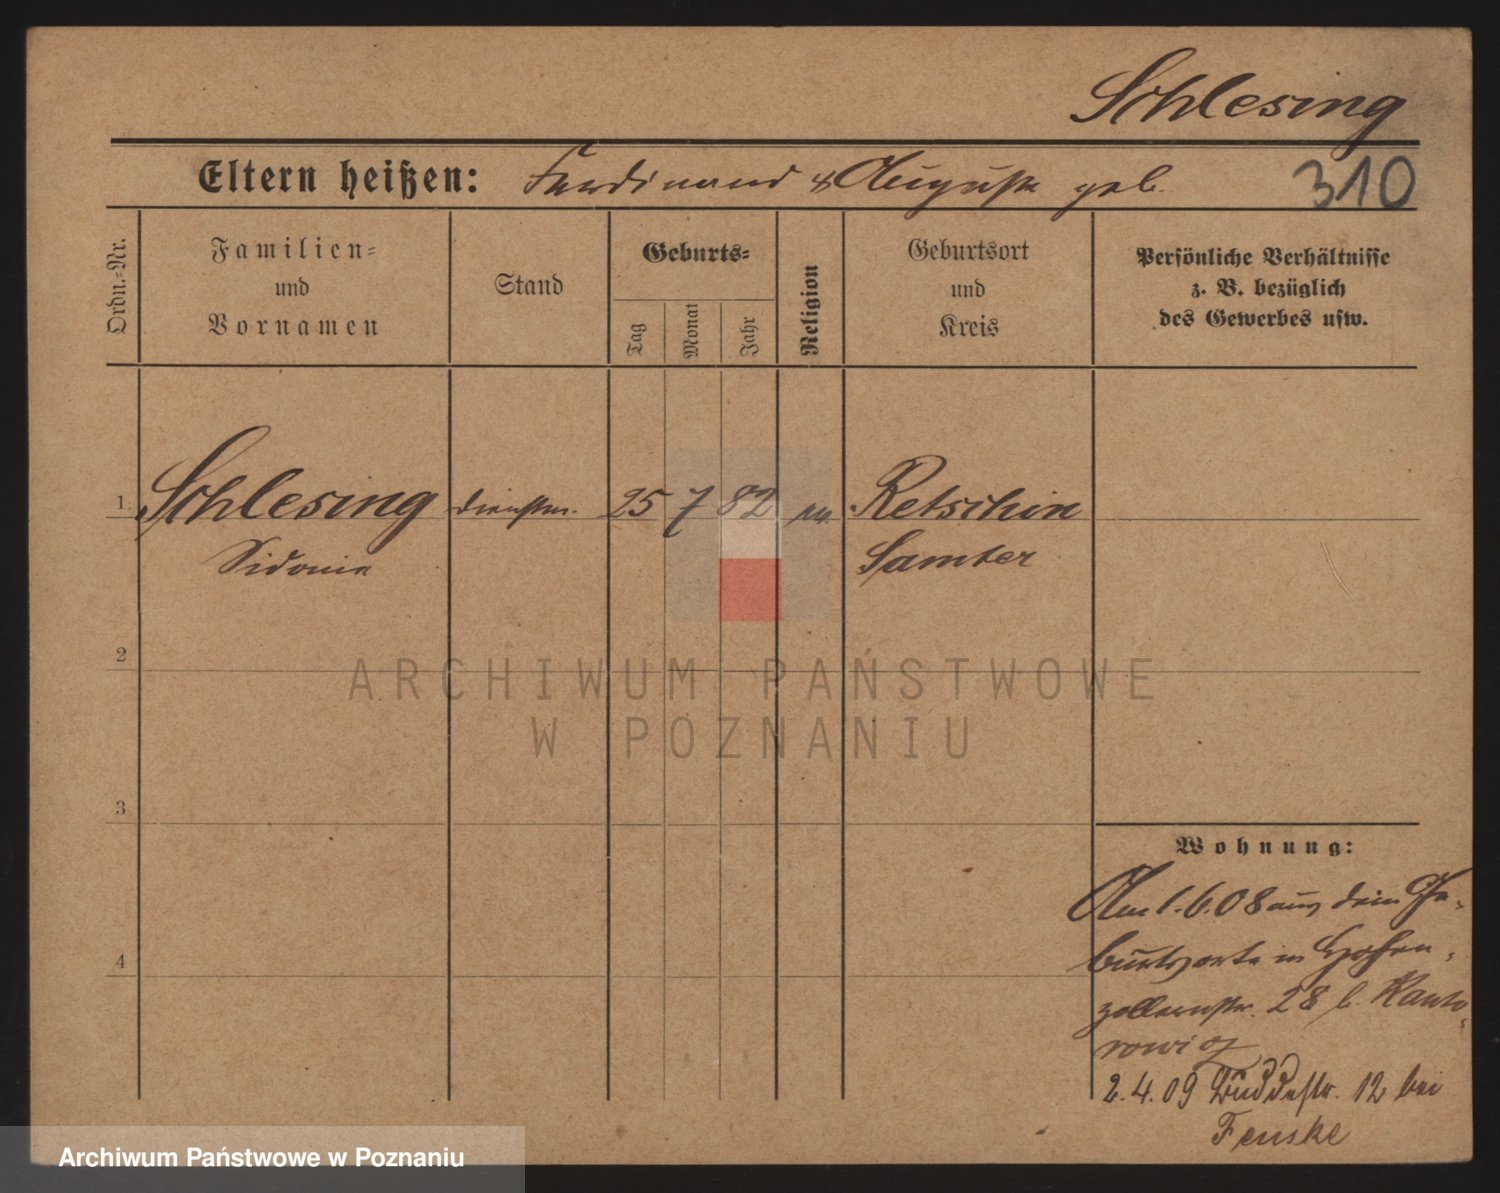 Schlesing
Eltern heißen: Ferdinand & Auguste geb. 310
Ordn.-Nr.
Familien-
und
Vornamen
Stand
Geburts-
Tag
Monat
Jahr
Religion
Geburtsort
und
Kreis
Persönliche Verhältnisse
z. B. bezüglich
des Gewerbes usw.
1 Schlesing dienstm. 25 7 82 ev. Retschin
Sidonie Samter
2
ARCHIWUM PAŃSTWOWE
W POZNANIU
3
Wohnung:
Am 1.6.08 aus dem Ge-
burtsorte in Hohen-
4
zollernstr. 28 b. Kanto-
rowicz
2.4.09 Buddestr. 12 bei
Fenske
Archiwum Państwowe w Poznaniu